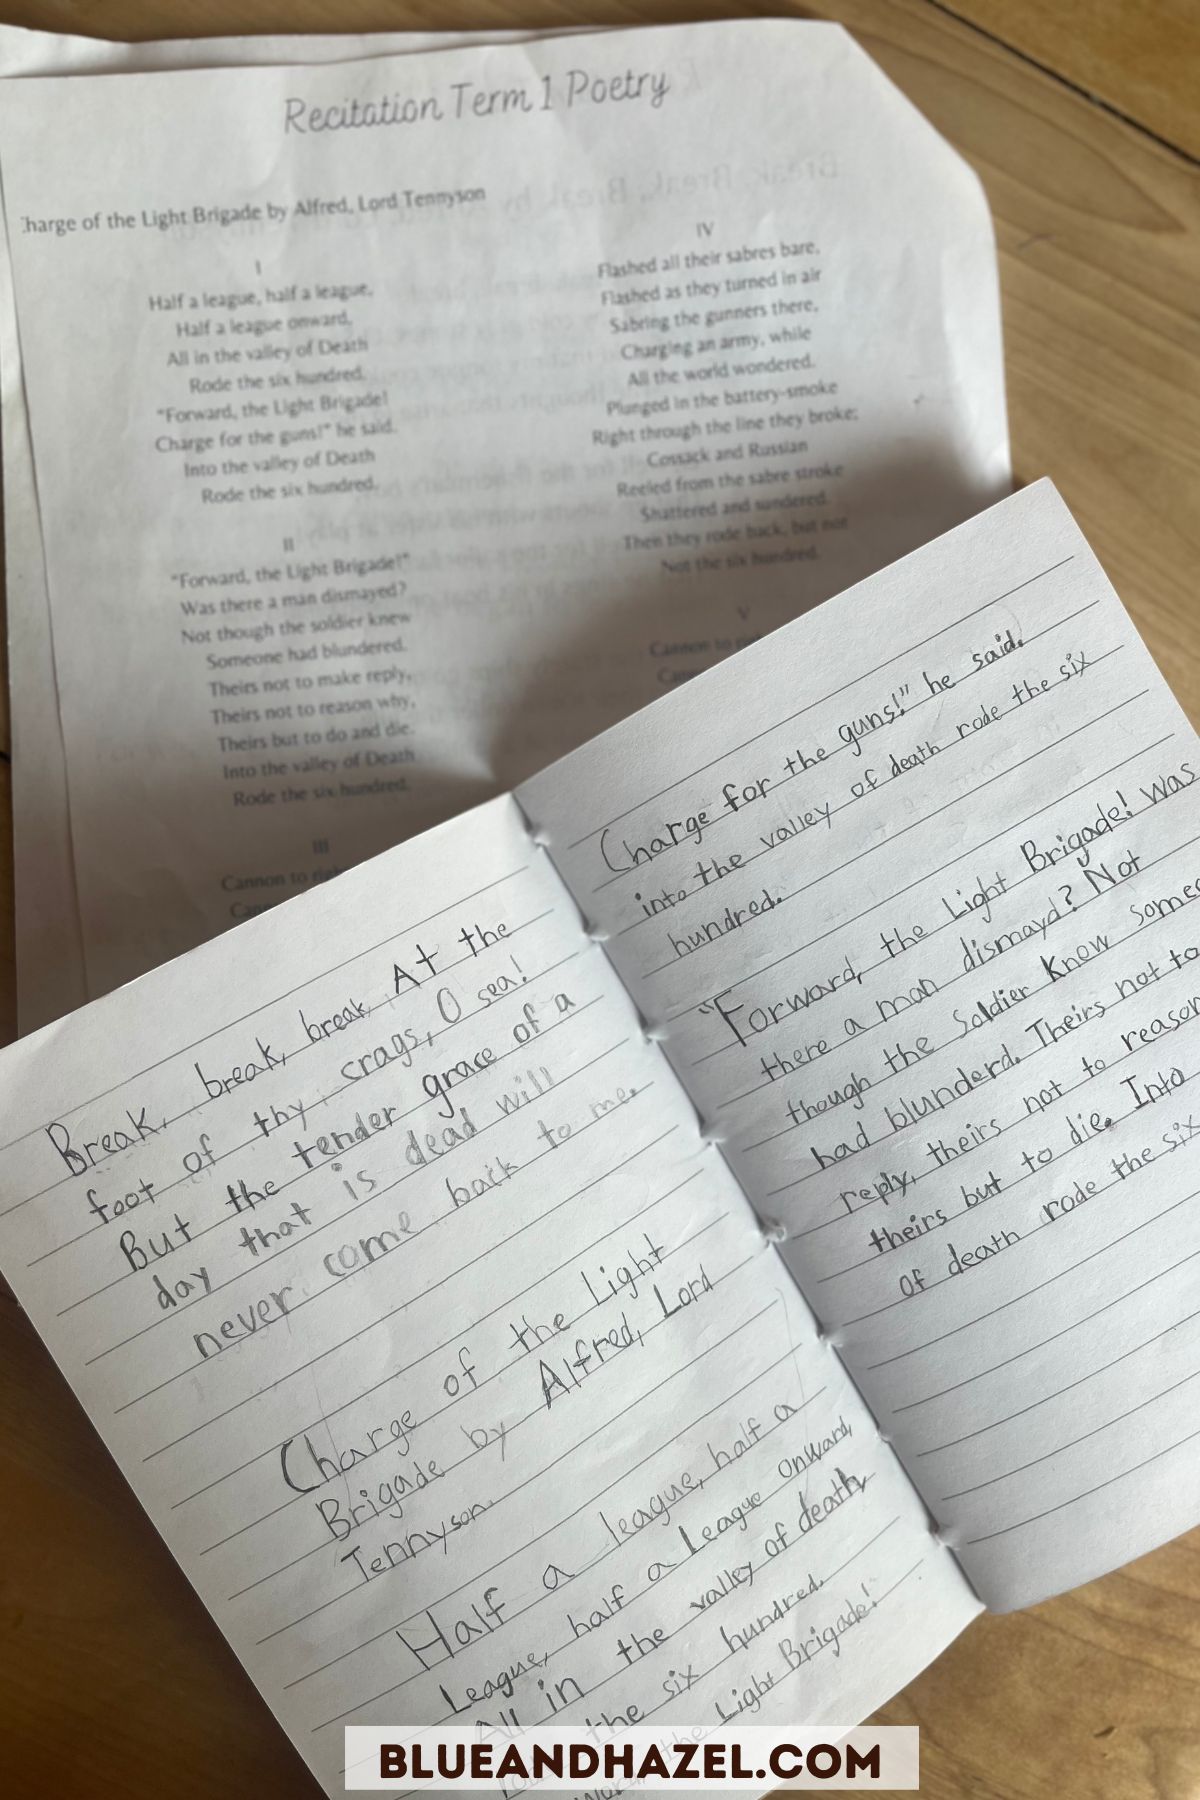 Recitation Term 1 Poetry
Charge of the Light Brigade by Alfred, Lord Tennyson
I
Half a league, half a league,
Half a league onward,
All in the valley of Death
Rode the six hundred.
"Forward, the Light Brigade!
Charge for the guns!" he said.
Into the valley of Death
Rode the six hundred.
II
"Forward, the Light Brigade!"
Was there a man dismayed?
Not though the soldier knew
Someone had blundered.
Theirs not to make reply,
Theirs not to reason why,
Theirs but to do and die.
Into the valley of Death
Rode the six hundred.
III
Cannon to
IV
Flashed all their sabres bare,
Flashed as they turned in air
Sabring the gunners there,
Charging an army, while
All the world wondered.
Plunged in the battery-smoke
Right through the line they broke;
Cossack and Russian
Reeled from the sabre stroke
Shattered and sundered.
Then they rode back, but not
Not the six hundred.
V
Cannon to
Break, break, break, At the
foot of thy crags, O sea!
But the tender grace of a
day that is dead will
never come back to me.
Charge of the Light
Brigade by Alfred, Lord
Tennyson.
Half a league, half a
League, half a League onward,
All in the valley of death,
the six hundred.
the Light Brigade!
Charge for the guns!" he said.
into the valley of death rode the six
hundred.
"Forward, the Light Brigade! Was
there a man dismayd? Not
though the Soldier Knew
had blunderd. Theirs not to
reply, theirs not to reason
theirs but to die. Into
of death rode the six
BLUEANDHAZEL.COM